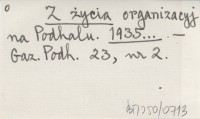 Z życia organizacyj
na Podhalu. 1935... —
Gaz. Podh. 23, nr 2.